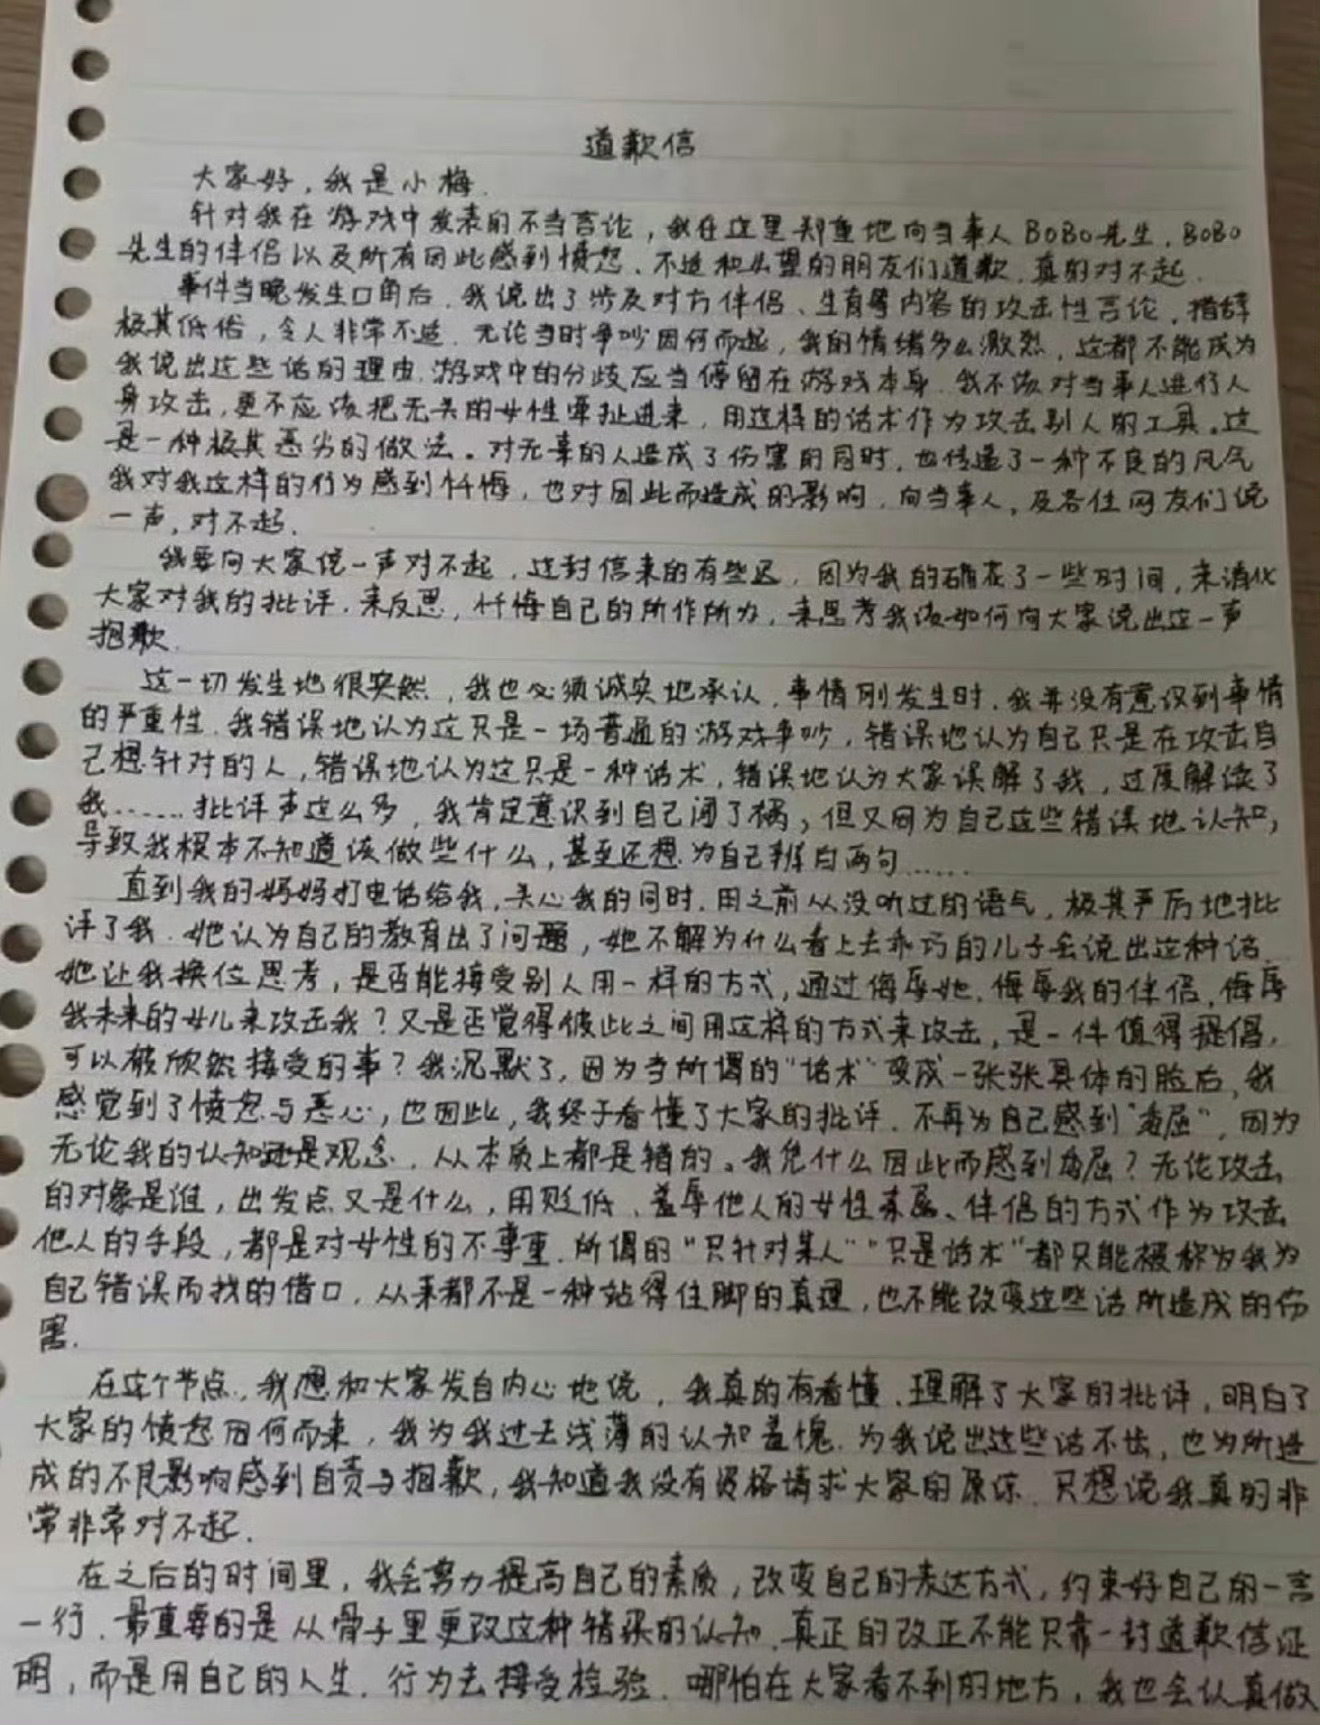 道歉信
大家好，我是小梅．
针对我在游戏中发表的不当言论，我在这里郑重地向当事人BOBO先生．BOBO
先生的伴侣以及所有因此感到愤怒、不适和失望的朋友们道歉．真的对不起．
事件当晚发生口角后．我说出了涉及对方伴侣、生育等内容的攻击性言论，措辞
极其低俗，令人非常不适．无论当时争吵因何而起，我的情绪多么激烈，这都不能成为
我说出这些话的理由．游戏中的分歧应当停留在游戏本身．我不该对当事人进行人
身攻击，更不应该把无关的女性牵扯进来，用这样的话术作为攻击别人的工具。这
是一种极其恶劣的做法。对无辜的人造成了伤害的同时，也传递了一种不良的风气
我对我这样的行为感到忏悔，也对因此而造成的影响．向当事人，及各位网友们说
一声，对不起．
我要向大家说一声对不起，这封信来的有些迟，因为我的确花了一些时间，来消化
大家对我的批评．来反思，忏悔自己的所作所为，来思考我该如何向大家说出这一声
抱歉．
这一切发生地很突然，我也必须诚实地承认，事情刚发生时，我并没有意识到事情
的严重性．我错误地认为这只是一场普通的游戏争吵，错误地认为自己只是在攻击自
己想针对的人，错误地认为这只是一种话术，错误地认为大家误解了我，过度解读了
我……批评声这么多，我肯定意识到自己闯了祸，但又因为自己这些错误地认知，
导致我根本不知道该做些什么，甚至还想为自己辩白两句……
直到我的妈妈打电话给我，关心我的同时，用之前从没听过的语气，极其严厉地批
评了我．她认为自己的教育出了问题，她不解为什么看上去乖巧的儿子会说出这种话．
她让我换位思考，是否能接受别人用一样的方式，通过侮辱她．侮辱我的伴侣，侮辱
我未来的女儿来攻击我？又是否觉得彼此之间用这样的方式来攻击，是一件值得提倡，
可以被欣然接受的事？我沉默了，因为当所谓的“话术”变成一张张具体的脸后，我
感觉到了愤怒与恶心，也因此，我终于看懂了大家的批评．不再为自己感到“委屈”，因为
无论我的认知还是观念．从本质上都是错的。我凭什么因此而感到委屈？无论攻击
的对象是谁，出发点又是什么，用贬低、羞辱他人的女性亲属、伴侣的方式作为攻击
他人的手段，都是对女性的不尊重．所谓的“只针对某人”“只是话术”都只能被称为我为
自己错误而找的借口．从来都不是一种站得住脚的真理，也不能改变这些话所造成的伤
害．
在这个节点，我想和大家发自内心地说，我真的有看懂、理解了大家的批评，明白了
大家的愤怒因何而来，我为我过去浅薄的认知羞愧．为我说出这些话不                 ，也为所造
成的不良影响感到自责与抱歉，我知道我没有资格请求大家的原谅．只想说我真的非
常非常对不起．
在之后的时间里，我会努力提高自己的素质，改变自己的表达方式，约束好自己的一言
一行．最重要的是从骨子里更改这种错误的认知．真正的改正不能只靠一封道歉信证
明，而是用自己的人生．行为去接受检验．哪怕在大家看不到的地方，我也会认真做